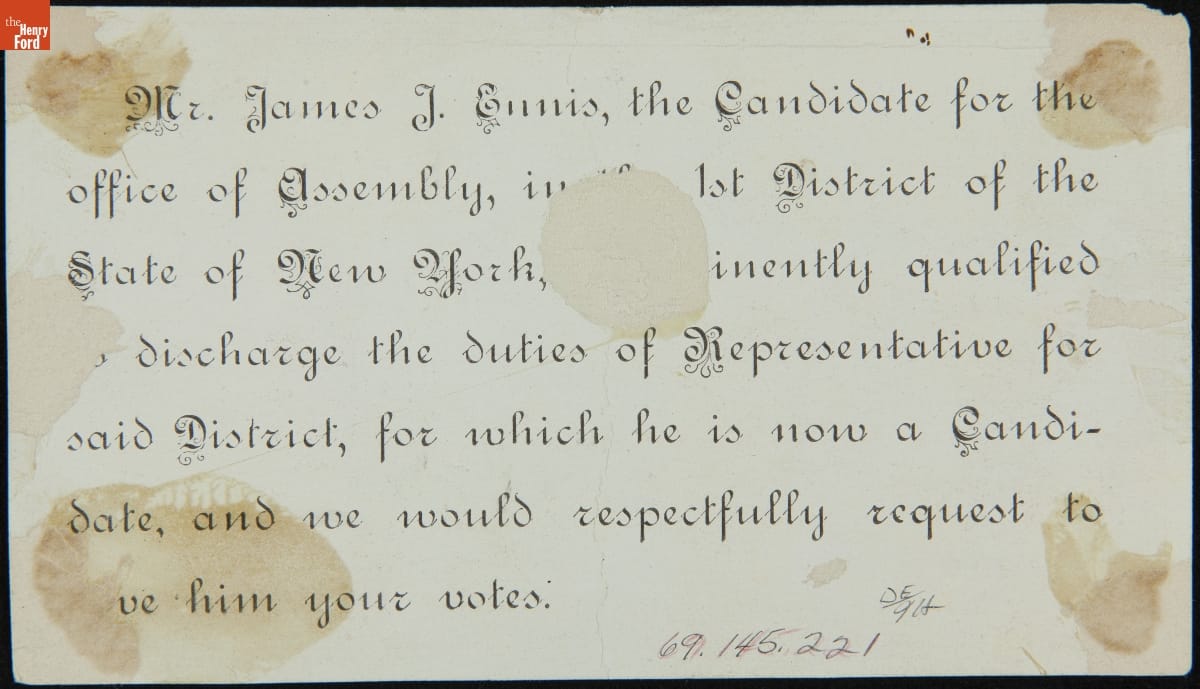 the
Henry
Ford
Mr. James J. Ennis, the Candidate for the
office of Assembly, in the 1st District of the
State of New York, inently qualified
discharge the duties of Representative for
said District, for which he is now a Candi-
date, and we would respectfully request to
ve him your votes.
69.145.221